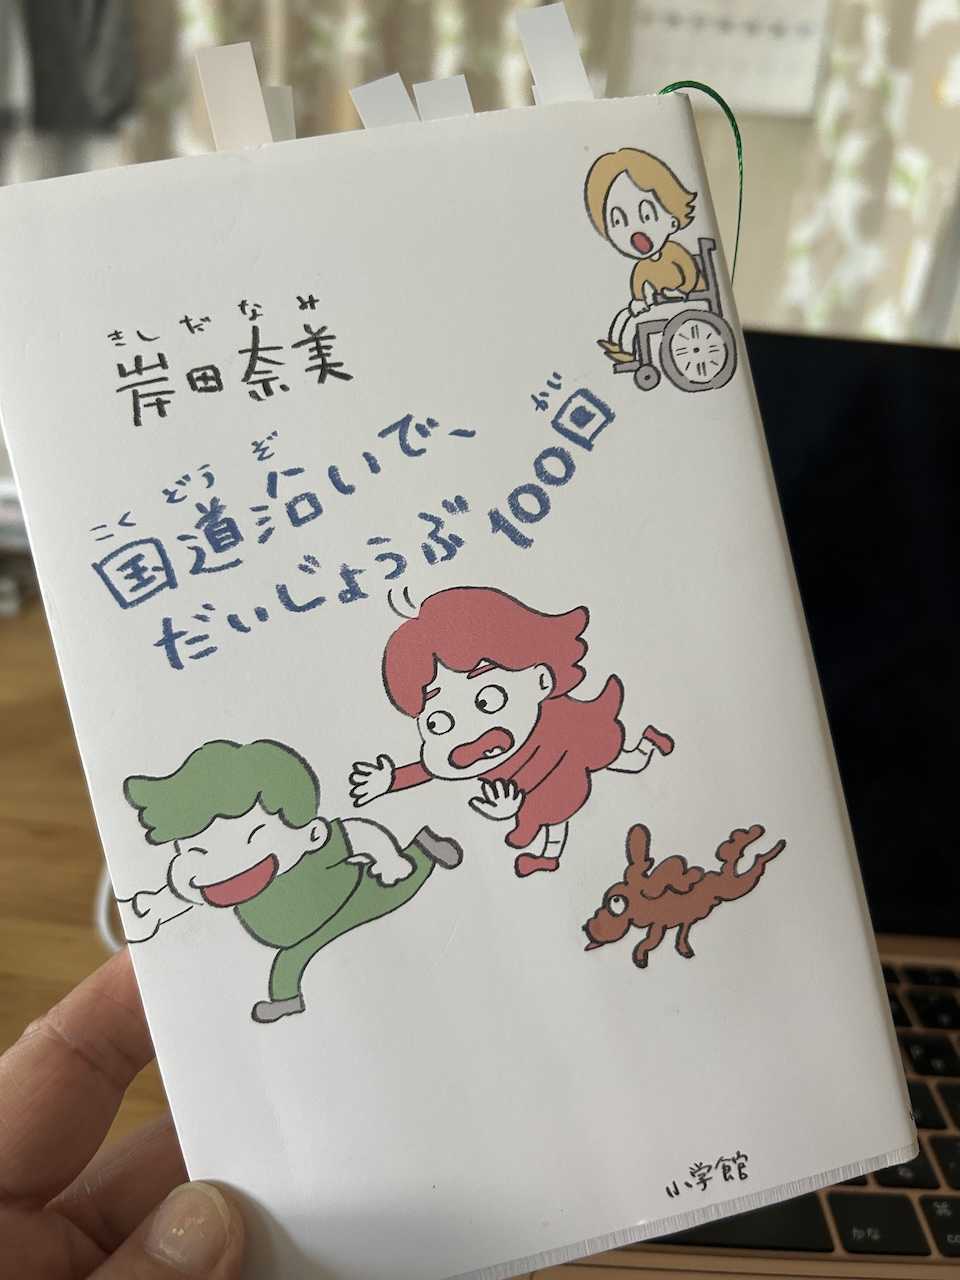 きしだなみ
岸田奈美
こくどうぞ
国道沿いで、
かい
だいじょうぶ100回
小学館
かな
⌘